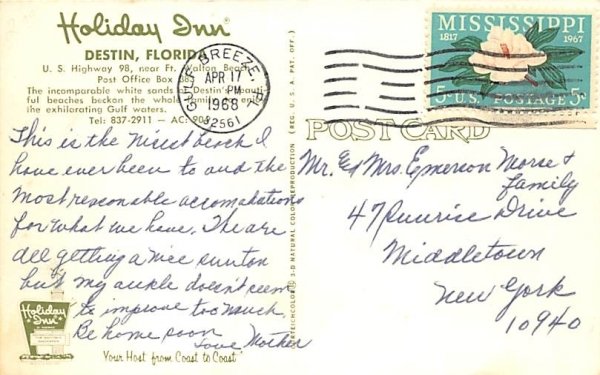 Holiday Inn®
DESTIN, FLORIDA
U. S. Highway 98, near Ft. Walton Beach
Post Office Box 883
The incomparable white sands Destin's beauti-
ful beaches beckon the whole family to enjoy
the exhilorating Gulf waters.
Tel: 837-2911 - AC: 904
GULF BREEZE,
APR 17
PM
1968
32561
MISSISSIPPI
1817 1967
5c U.S. POSTAGE 5c
POST CARD
3-D NATURAL COLOR REPRODUCTION (REG. U. S. PAT. OFF.)
This is the Nicest beach I
have ever been to and the
most reasonable accomadations
for what we have. The are
all getting a nice suntan
but my ankle doesn't seem
to improve too much
Be home soon
Love Mother
Mr. Ed Mrs. Emerson Morse &
family
47 Sunrise Drive
Middletown
New York
10940
Holiday
Inn
"Your Host from Coast to Coast"